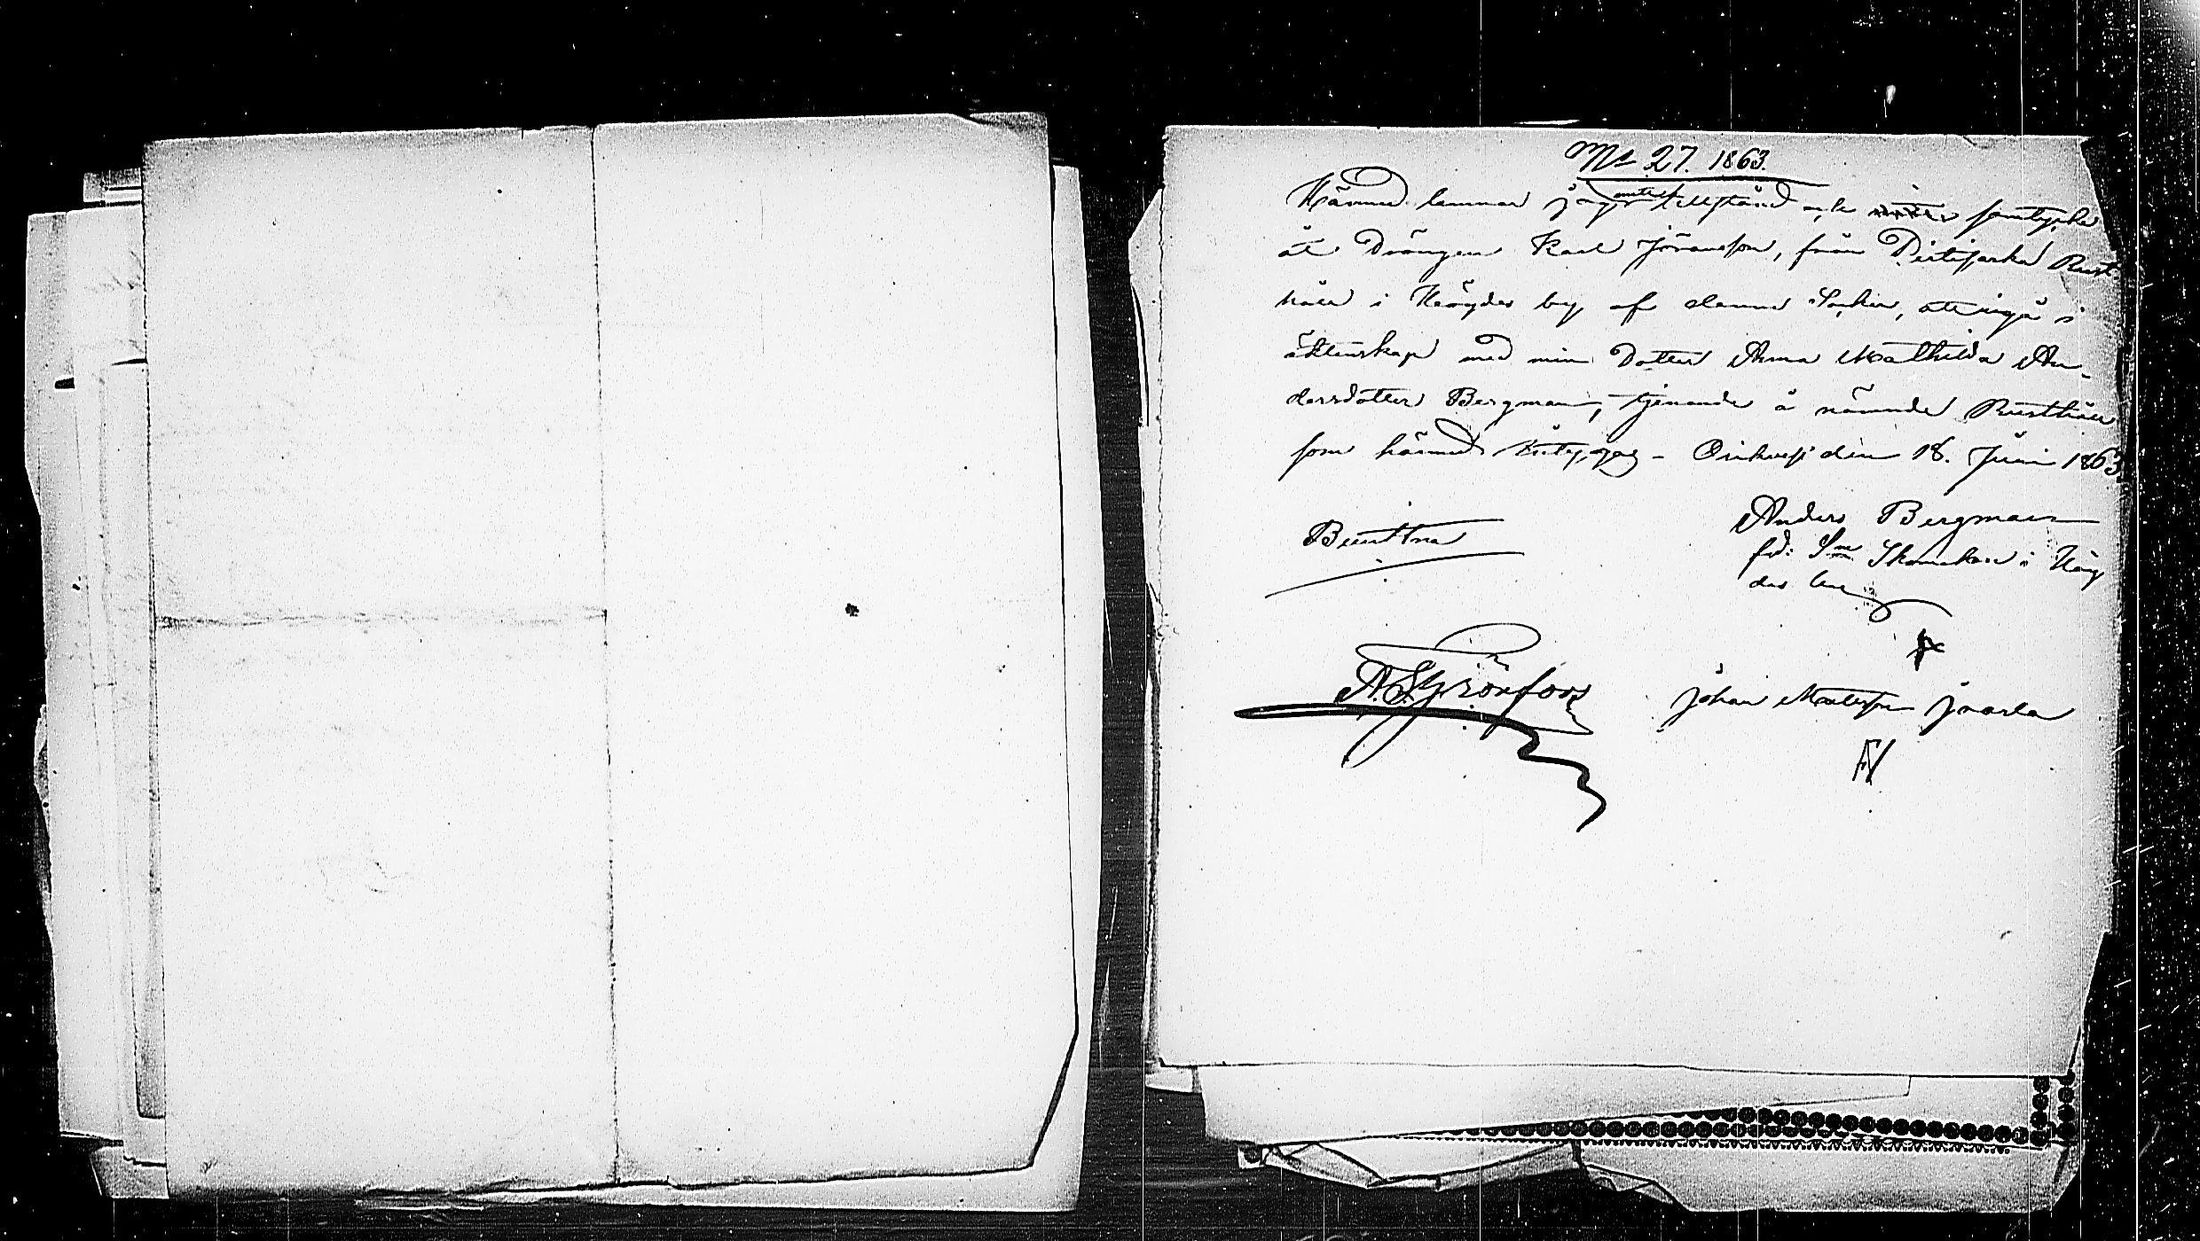 No 27. 1863.
Härmed lemnar jag mitt tillstånd och samtycke
åt Drängen Karl Jöransson, från Pertisarka Rust-
håll i by af denna Socken, att ingå i
äktenskap med min Dotter Anna Mathilda An-
dersdotter Bergman, tjenande å nämnde Rusthåll
som härmed betygas – den 18. Juni 1863
Bevittna
Anders Bergman
fd: Sn Skomakare i
das by
A. Grönfors
Johan Matsson